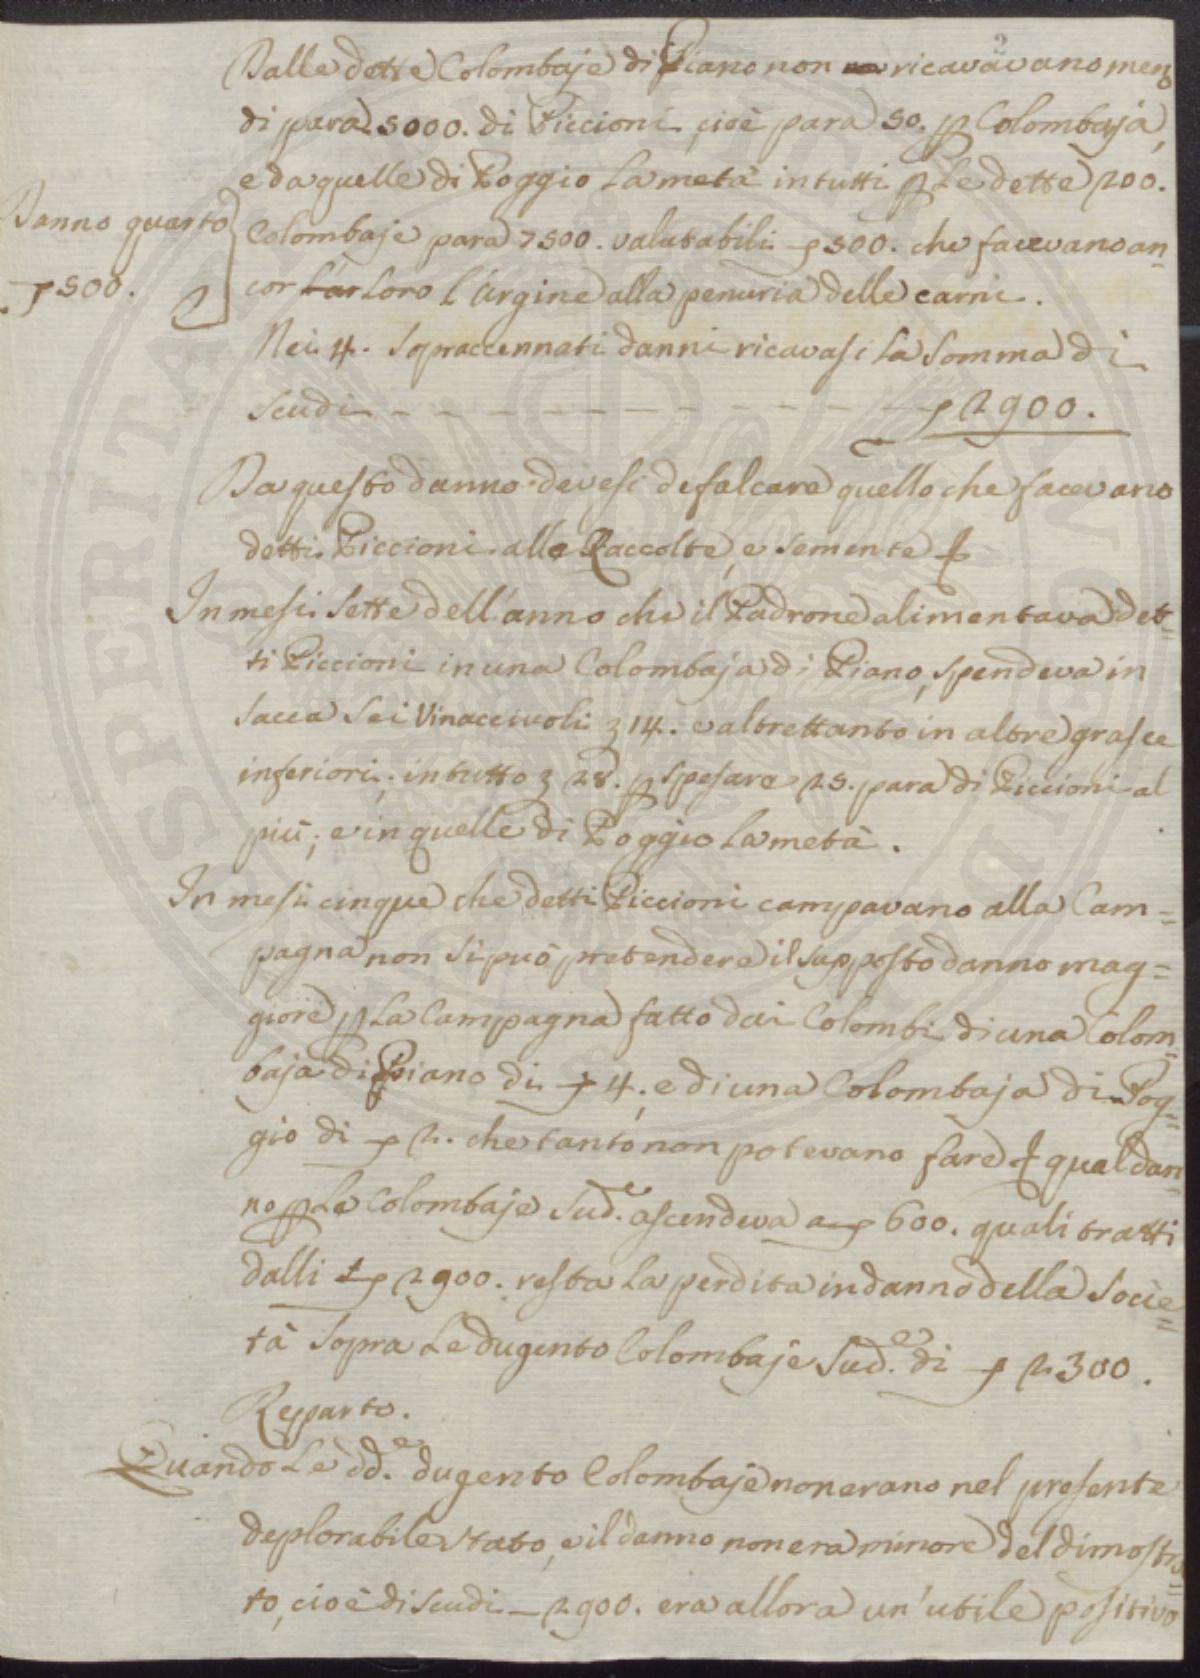 2
Dalle dette Colombaje di Piano non ricavavano men
di para 5000. di Piccioni cioè para 50. p Colombaja,
e da quelle di Poggio la metà in tutti p le dette 200.
Danno quarto
Colombaje para 7500. valutabili 500. che facevano an=
500.
cor loro l'Argine alla penuria delle carni.
Nei 4. sopraccennati danni ricavasi la somma di
scudi - - - - - - - - - - - 2900.
Da questo danno devesi defalcare quello che facevano
detti Piccioni alle Raccolte, e semente
In mesi sette dell'anno che il Padrone alimentava det=
ti Piccioni in una Colombaja di Piano, spendeva in
sacca sei Vinacciuoli 14. e altrettanto in altre grasce
inferiori, in tutto 28. p spesare 25. para di Piccioni al
più; e in quelle di Poggio la metà.
In mesi cinque che detti Piccioni campavano alla Cam=
pagna non si può pretendere il supposto danno mag=
giore p la Campagna fatto dai Colombi di una Colom=
baja di Piano di 4. e di una Colombaja di Pog=
gio di 2. che tanto non potevano fare qual dan=
no p le Colombaje Sud.e ascendeva a 600. quali tratti
dalli 2900. resta la perdita in danno della Socie=
tà sopra le dugento Colombaje Sud.e di 2300.
Reparto.
Quando le dd.e dugento Colombaje non erano nel presente
deplorabile stato, e il danno non era minore del dimostra=
to, cioè di scudi 2900. era allora un'utile positivo